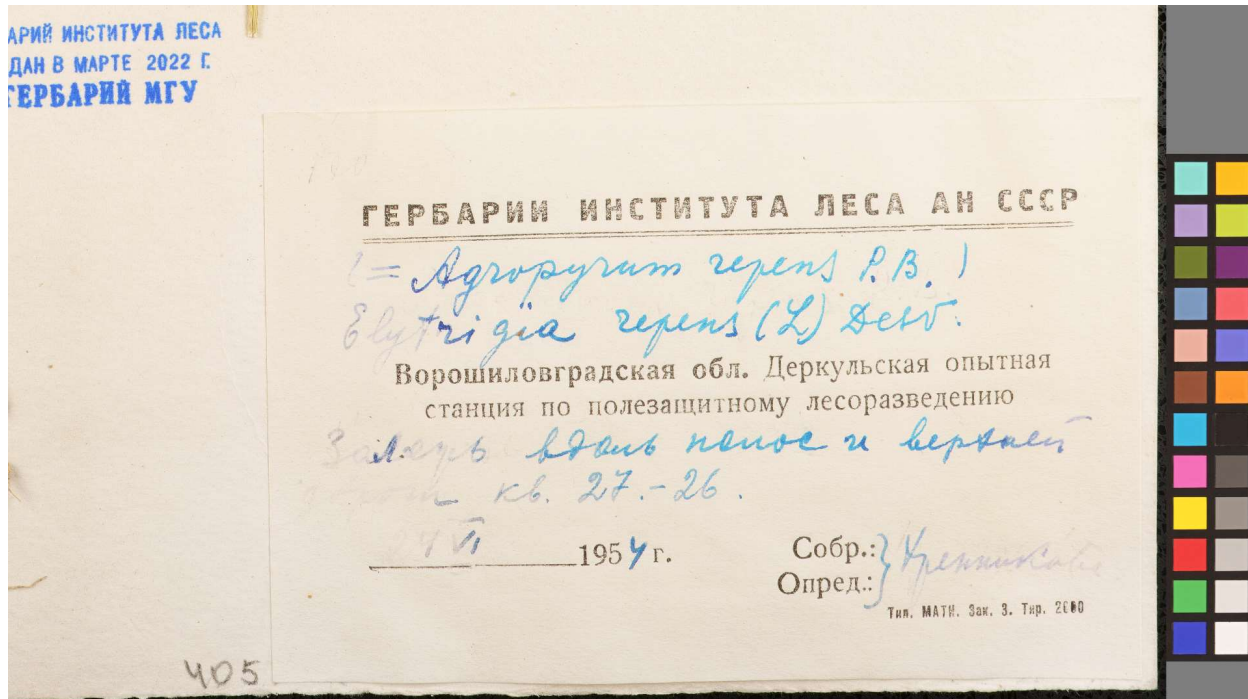 АРИЙ ИНСТИТУТА ЛЕСА
ДАН В МАРТЕ 2022 Г.
ГЕРБАРИЙ МГУ
ГЕРБАРИИ ИНСТИТУТА ЛЕСА АН СССР
(= Agropyrum repens P.B.)
Elytrigia repens (L) Desv.
Ворошиловградская обл. Деркульская опытная
станция по полезащитному лесоразведению
вдоль полос и верхней
кв. 27.-26.
24 VI 1954 г.
Собр.:
Опред.:
Тип. МАТИ. Зак. 3. Тир. 2000
405